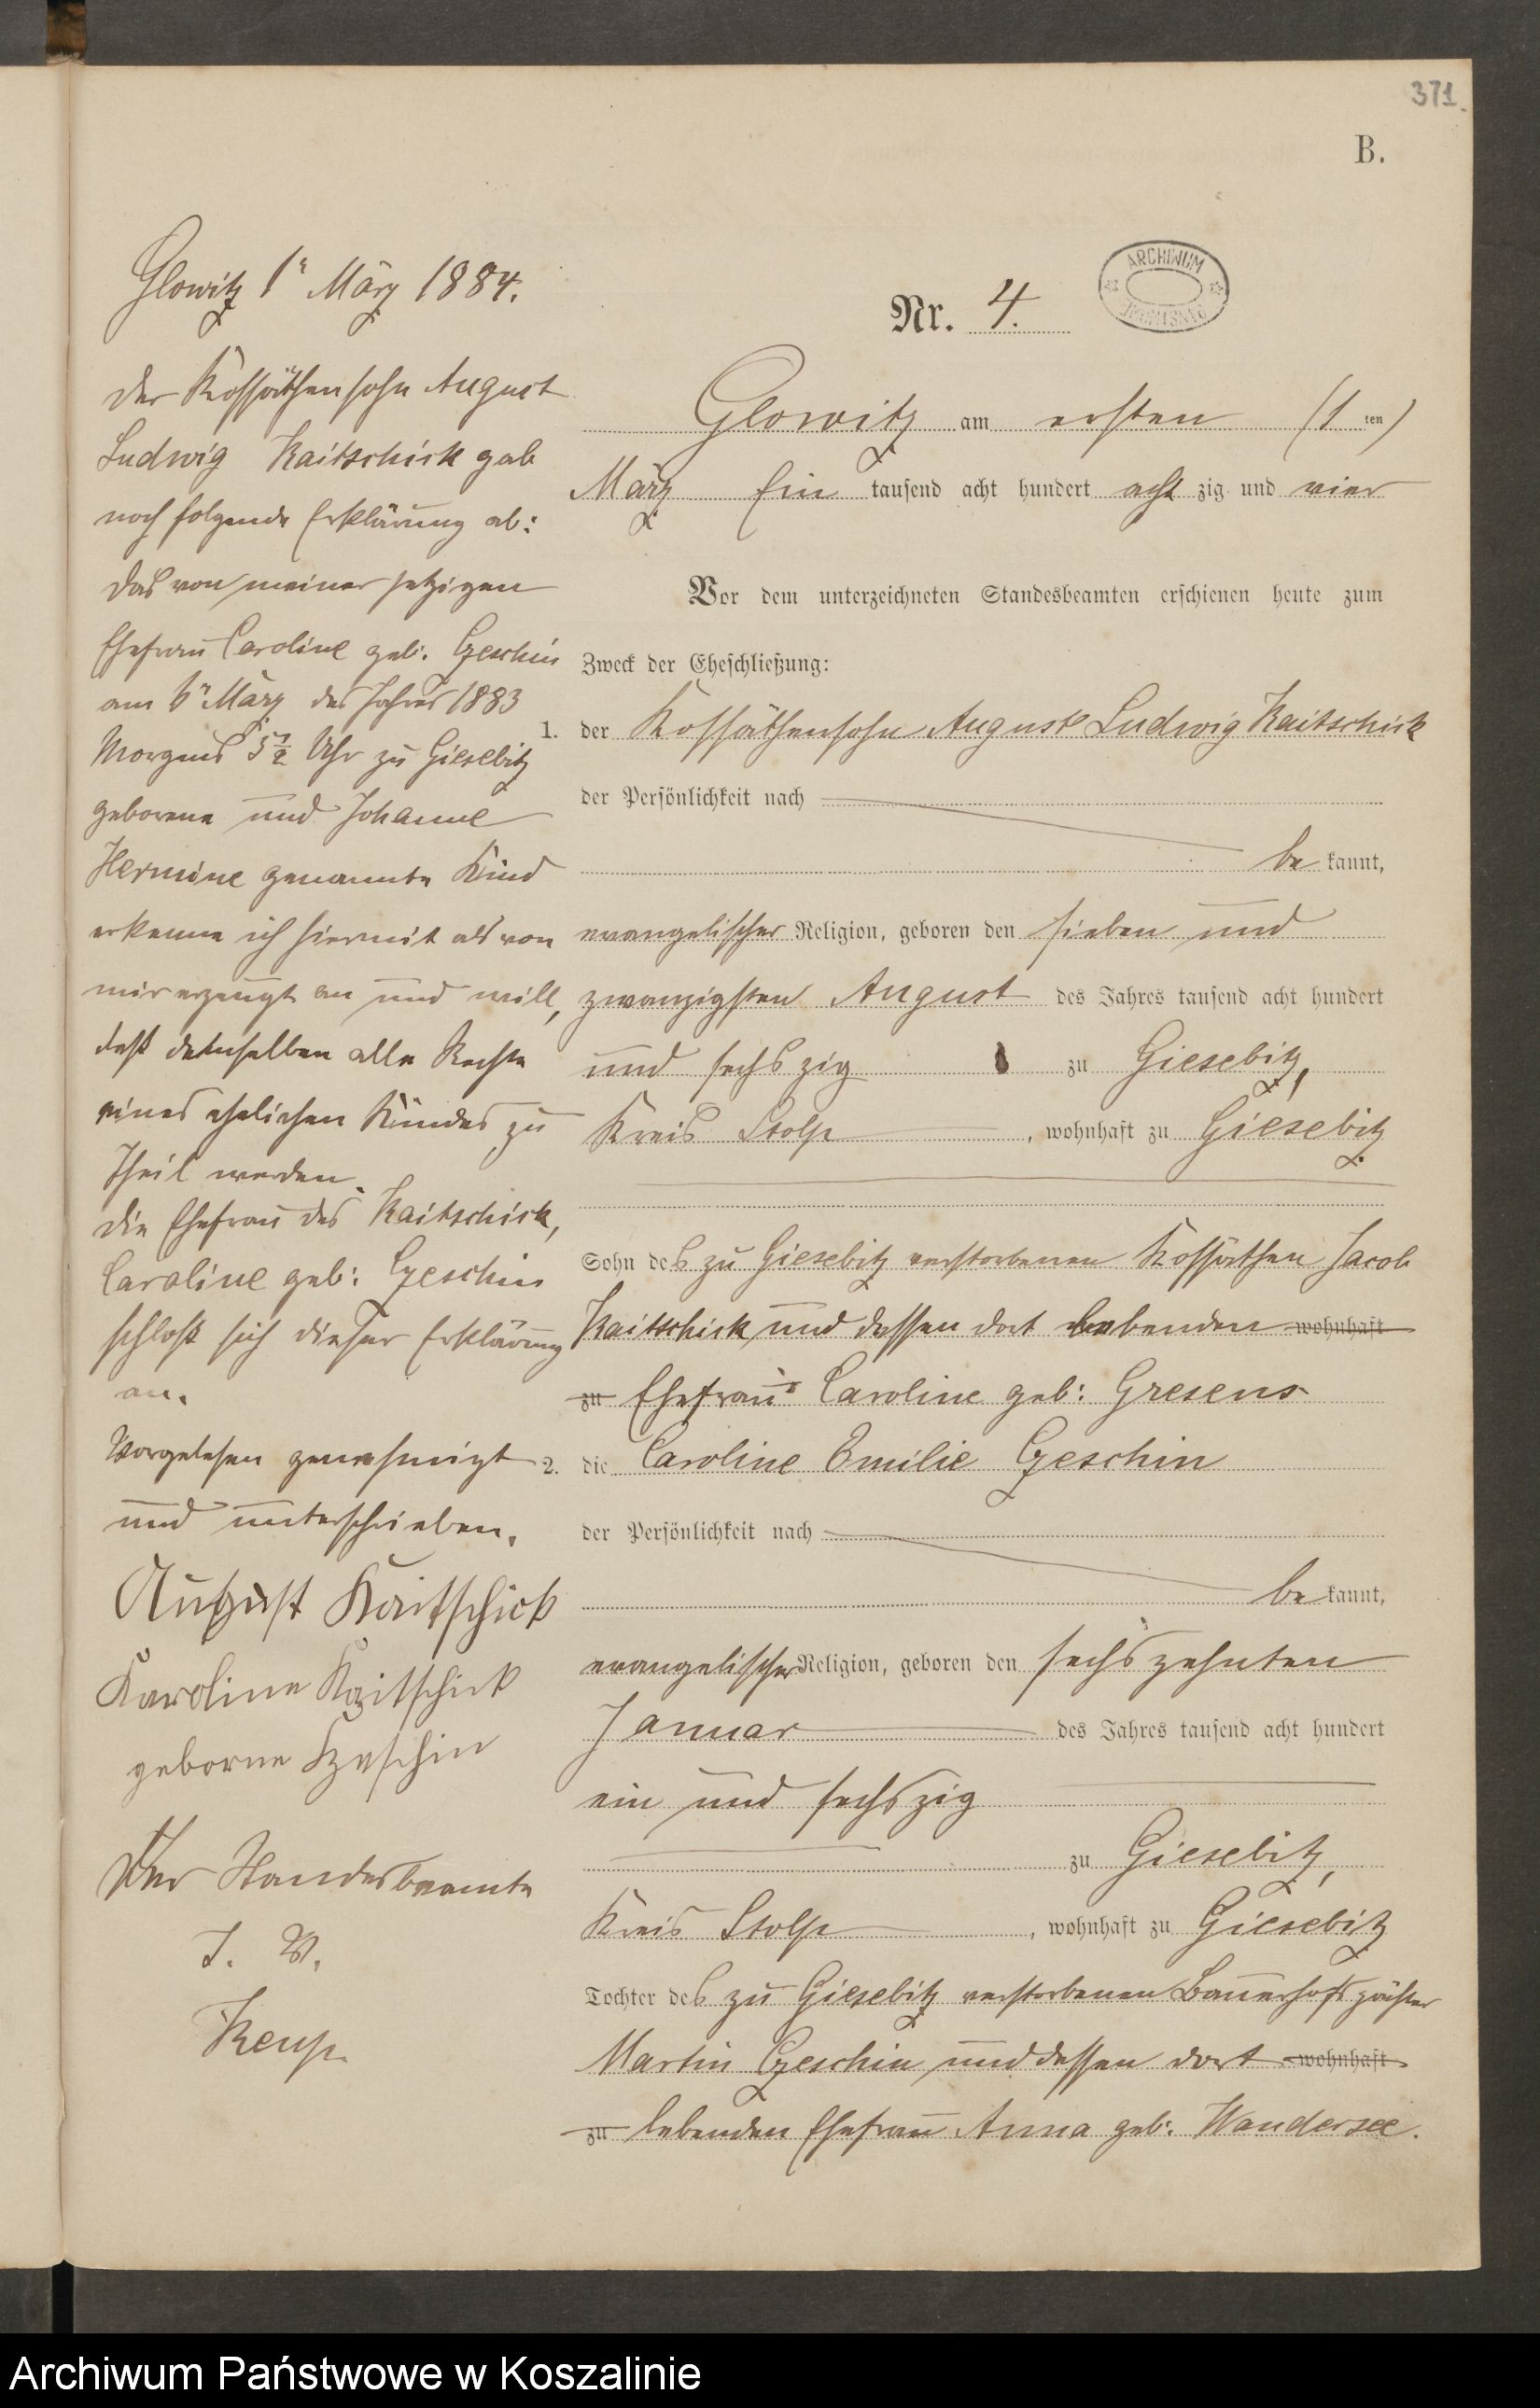 371.
B.
Glowitz 1n März 1884.
Der Kossäthensohn August
Ludwig Kaitschick gab
noch folgende Erklärung ab:
Das von meiner jetzigen
Ehefrau Caroline geb: Czeschin
am 6n März des Jahres 1883
Morgens 5 1/2 Uhr zu Giesebitz
geborene und Johanne
Hermine genannte Kind
erkenne ich hiermit als von
mir erzeugt an und will,
daß demselben alle Rechte
eines ehelichen Kindes zu
Theil werden.
Die Ehefrau des Kaitschick,
Caroline geb: Czeschin
schloß sich dieser Erklärung
an.
Vorgelesen genehmigt
und unterschrieben.
August Kaitschick
Karoline Kaitschick
geborne Czeschin
Der Standesbeamte
I. V.
Nr. 4.
ARCHIWUM
Glowitz am ersten (1 ten)
März Ein tausend acht hundert acht zig und vier
Vor dem unterzeichneten Standesbeamten erschienen heute zum
Zweck der Eheschließung:
1. der Kossäthensohn August Ludwig Kaitschick
der Persönlichkeit nach
be kannt,
evangelischer Religion, geboren den sieben und
zwanzigsten August des Jahres tausend acht hundert
und sechszig zu Giesebitz,
Kreis Stolp, wohnhaft zu Giesebitz
Sohn des zu Giesebitz verstorbenen Kossäthen Jacob
Kaitschick und dessen dort lebenden wohnhaft
zu Ehefrau Caroline geb: Gresens
2. die Caroline Emilie Czeschin
der Persönlichkeit nach
be kannt,
evangelischer Religion, geboren den sechszehnten
Januar des Jahres tausend acht hundert
ein und sechszig
zu Giesebitz,
Kreis Stolp, wohnhaft zu Giesebitz
Tochter des zu Giesebitz verstorbenen Bauerhofspächter
Martin Czeschin und dessen dort wohnhaft
zu lebenden Ehefrau Anna geb: Wandersee.
Archiwum Państwowe w Koszalinie